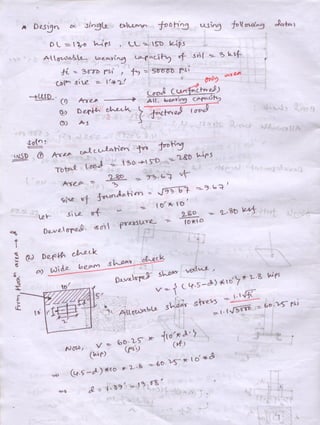 * Design a single column footing using following data:
DL = 130 kips , LL = 150 kips
Allowable bearing capacity of soil = 3 ksf
f'c = 3000 psi , fy = 50000 psi
col size = 1'*2'
only area
→ USD (i) Area → Load (unfactored)
All. bearing capacity
(ii) Depth check
(iii) As } factored load
soln:
WSD (i) Area calculation for footing
Total load = 130+150 = 280 kips
Area = 280/3 = 93.67 sf
Size of foundation = √93.67 = 9.67'
Let size of " = 10'*10'
Developed soil pressure = 280/10*10 = 2.80 ksf
(ii) Depth check
a) Wide beam shear check
Developed shear value,
V = { (4.5-d)*10'} * 2.8 kips
Allowable shear stress = 1.1√f'c
= 1.1√3000 = 60.25 psi
From "Max" area → d
10'
5'
10'
2'
Now, V = 60.25 * {10'*d}
(kip) (psi) (sf)
⇒ (4.5-d)*10*2.8 = 60.25*10'*d
⇒ d =